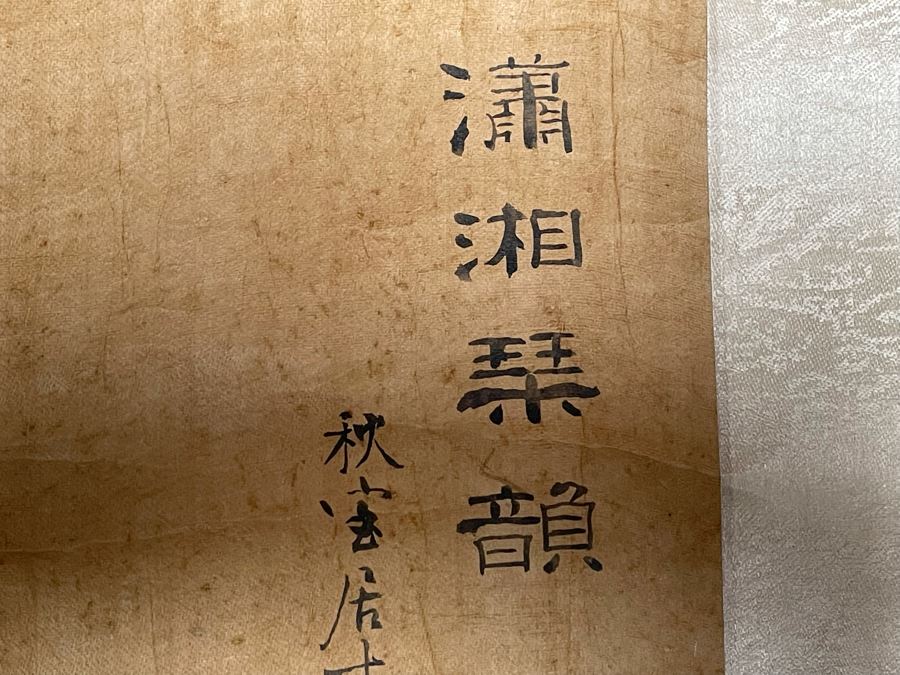 瀟湘琹韻
秋室居士